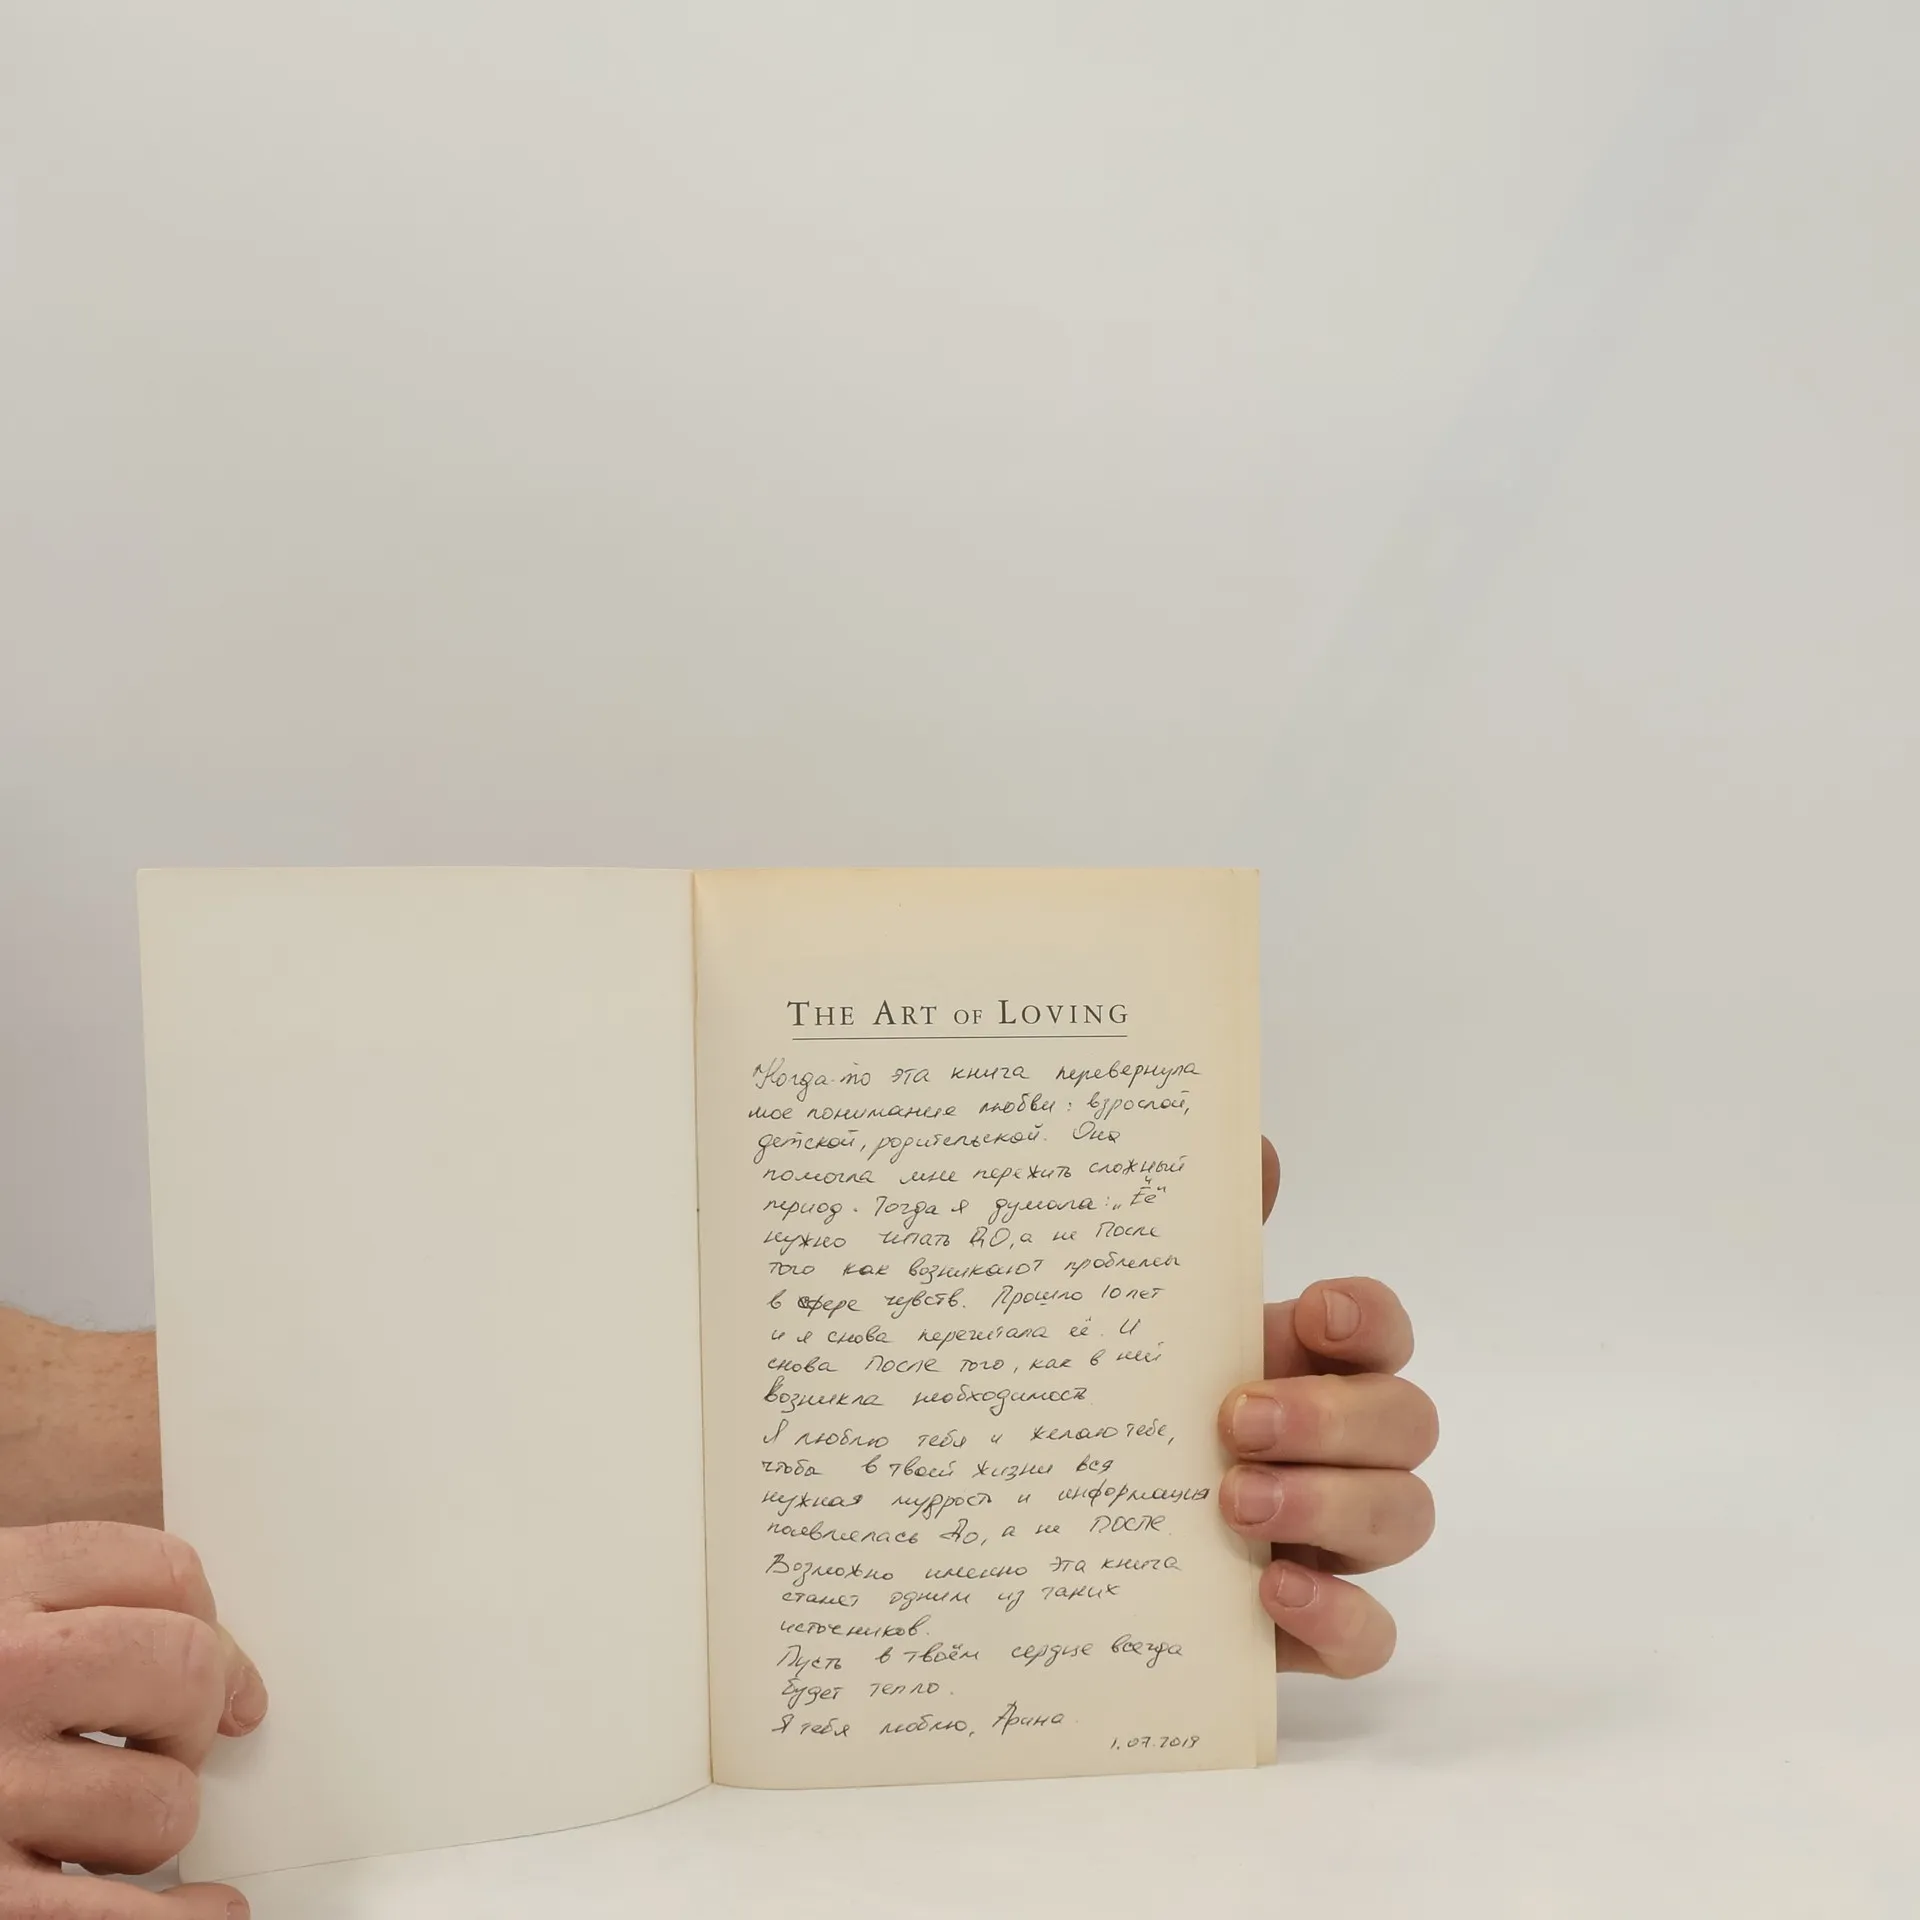 THE ART OF LOVING
"Когда-то эта книга перевернула
мое понимание любви: взрослой,
детской, родительской. Она
помогла мне пережить сложный
период. Тогда я думала: „Её"
нужно читать ДО, а не После
того как возникают проблемы
в сфере чувств. Прошло 10 лет
и я снова перечитала её. И
снова После того, как в ней
возникла необходимость
Я люблю тебя и желаю тебе,
чтобы в твоей жизни вся
нужная мудрость и информация
появлялась До, а не ПОСЛЕ.
Возможно именно эта книга
станет одним из таких
источников.
Пусть в твоём сердце всегда
будет тепло.
Я тебя люблю, Арина
1.07.2019